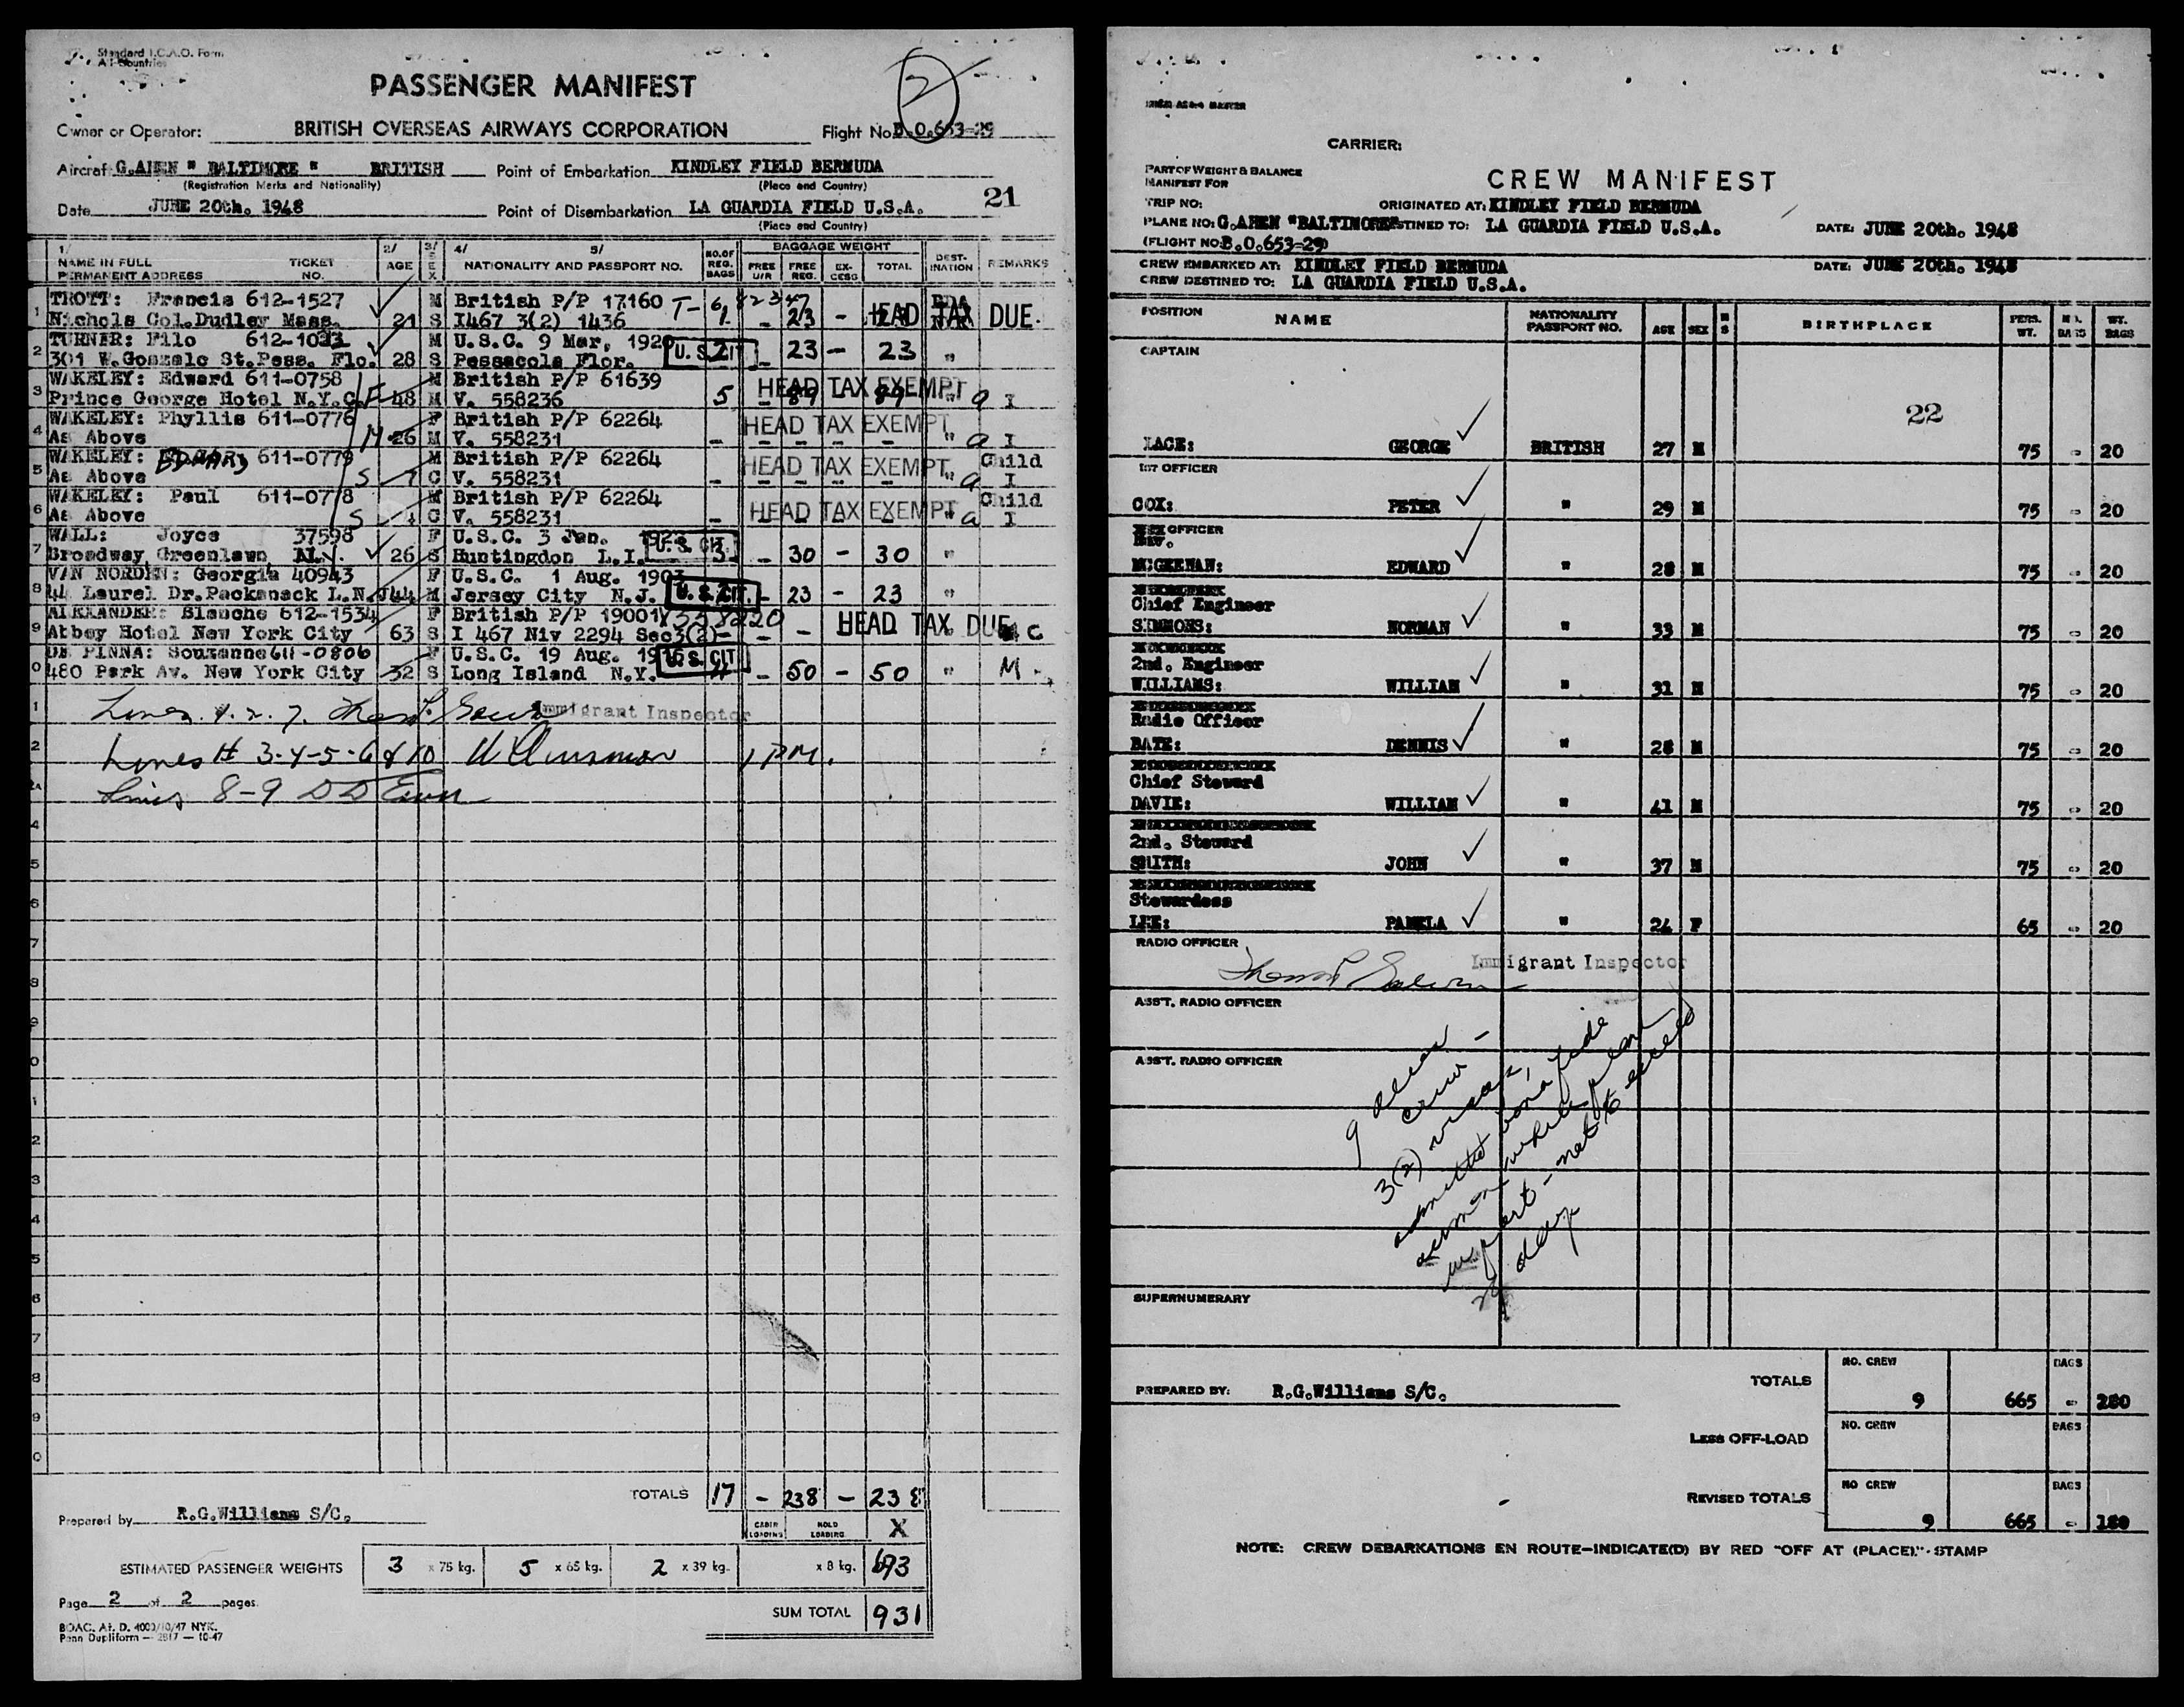 Standard I.C.A.O. Form
All Countries
PASSENGER MANIFEST
2
Owner or Operator: BRITISH OVERSEAS AIRWAYS CORPORATION Flight No. B.O.653-29
Aircraft G.AHEN " BALTIMORE " BRITISH Point of Embarkation KINDLEY FIELD BERMUDA
(Registration Marks and Nationality) (Place and Country)
21
Date JUNE 20th. 1948 Point of Disembarkation LA GUARDIA FIELD U.S.A.
(Place and Country)
1/ 2/ 3/ 4/ 5/ NO.OF REG. BAGS BAGGAGE WEIGHT DEST-INATION REMARKS
NAME IN FULL TICKET NO. AGE SEX NATIONALITY AND PASSPORT NO. FREE U/R FREE REG. EX-CESS TOTAL
PERMANENT ADDRESS
1 TROTT: Francis 612-1527 M British P/P 17160 HEAD TAX DUE.
Nichols Col.Dudley Mass. 21 S I467 3(2) 1436 1 - 23 -
2 TURNER: Filo M U.S.C. 9 Mar, 1920 U.S.CIT
301 W.Gonzalo St.Pess. Flo. 28 S Pessacola Flor. - 23 - 23 "
3 WAKELEY: Edward 611-0758 M British P/P 61639 HEAD TAX EXEMPT
Prince George Hotel N.Y.C. F 48 M V. 558236 5 - 89 - 89 " a I
4 WAKELEY: Phyllis 611-0776 F British P/P 62264 HEAD TAX EXEMPT
As Above M 26 M V. 558231 - - - - - " a I
5 WAKELEY: EDWARD 611-0779 M British P/P 62264 HEAD TAX EXEMPT Child
As Above S 7 C V. 558231 - - - - - " a I
6 WAKELEY: Paul 611-0778 M British P/P 62264 HEAD TAX EXEMPT Child
As Above S 4 C V. 558231 - " a I
7 WALL: Joyce 37598 F U.S.C. 3 Jan. U.S. CIT
Broadway, Greenlawn N.Y. 26 S Huntingdon L.I. 3 - 30 - 30 "
8 VAN NORDEN: Georgia 40943 F U.S.C. 1 Aug. 1903 U.S.CIT.
44 Laurel Dr.Packanack L.N.J 44 M Jersey City N.J. - 23 - 23 "
9 ALEXANDER: Blanche 612-1534 F British P/P 19001 HEAD TAX DUE
Abbey Hotel New York City 63 S I 467 Niv 2294 Sec3(2) - - - C
0 DE PINNA: Souzanne 611-0806 F U.S.C. 19 Aug. 1916 U.S.CIT
480 Park Av. New York City 32 S Long Island N.Y. - 50 - 50 " M
1 Lines 1. 2. 7. Immigrant Inspector
2 Lines # 3-4-5-6 & 10 1 PM.
Lines 8-9
4
5
6
7
8
9
0
1
2
3
4
5
6
7
8
9
0
TOTALS 17 - 238 - 238
Prepared by R.G.Williams S/C.
CABIN LOADING HOLD LOADING X
ESTIMATED PASSENGER WEIGHTS 3 x 75 kg. 5 x 65 kg. 2 x 39 kg. x 8 kg. 693
Page 2 of 2 pages.
SUM TOTAL 931
BOAC. At. D. 4000/10/47 NYK.
Penn Dupliform — 2817 — 10-47
CARRIER:
PART OF WEIGHT & BALANCE
MANIFEST FOR
CREW MANIFEST
TRIP NO: ORIGINATED AT: KINDLEY FIELD BERMUDA
PLANE NO: G.AHEN "BALTIMORE" DESTINED TO: LA GUARDIA FIELD U.S.A. DATE: JUNE 20th. 1948
(FLIGHT NO: B.O.653-29)
CREW EMBARKED AT: KINDLEY FIELD BERMUDA DATE: JUNE 20th. 1948
CREW DESTINED TO: LA GUARDIA FIELD U.S.A.
POSITION NAME NATIONALITY PASSPORT NO. AGE SEX M S BIRTHPLACE PERS. WT. NO. BAGS WT. BAGS
CAPTAIN
22
LACE: GEORGE BRITISH 27 M 75 - 20
1ST OFFICER
COX: PETER " 29 M 75 - 20
OFFICER
Nav.
MCGEENAN: EDWARD " 28 M 75 - 20
Chief Engineer
SIMMONS: NORMAN " 33 M 75 - 20
2nd. Engineer
WILLIAMS: WILLIAM " 31 M 75 - 20
Radio Officer
BATE: DENNIS " 28 M 75 - 20
Chief Steward
DAVIE: WILLIAM " 41 M 75 - 20
2nd. Steward
SMITH: JOHN " 37 M 75 - 20
Stewardess
LEE: PAMELA " 24 F 65 - 20
RADIO OFFICER
Immigrant Inspector
ASST. RADIO OFFICER
ASST. RADIO OFFICER
9 alien
crew -
3(2) visas,
admitted bona fide
airmen while plane
in port - not to exceed
29 days
SUPERNUMERARY
PREPARED BY: R.G.Williams S/C.
TOTALS NO. CREW 9 665 BAGS - 280
LESS OFF-LOAD NO. CREW BAGS
REVISED TOTALS NO CREW 9 665 BAGS - 180
NOTE: CREW DEBARKATIONS EN ROUTE-INDICATE(D) BY RED "OFF AT (PLACE)." STAMP